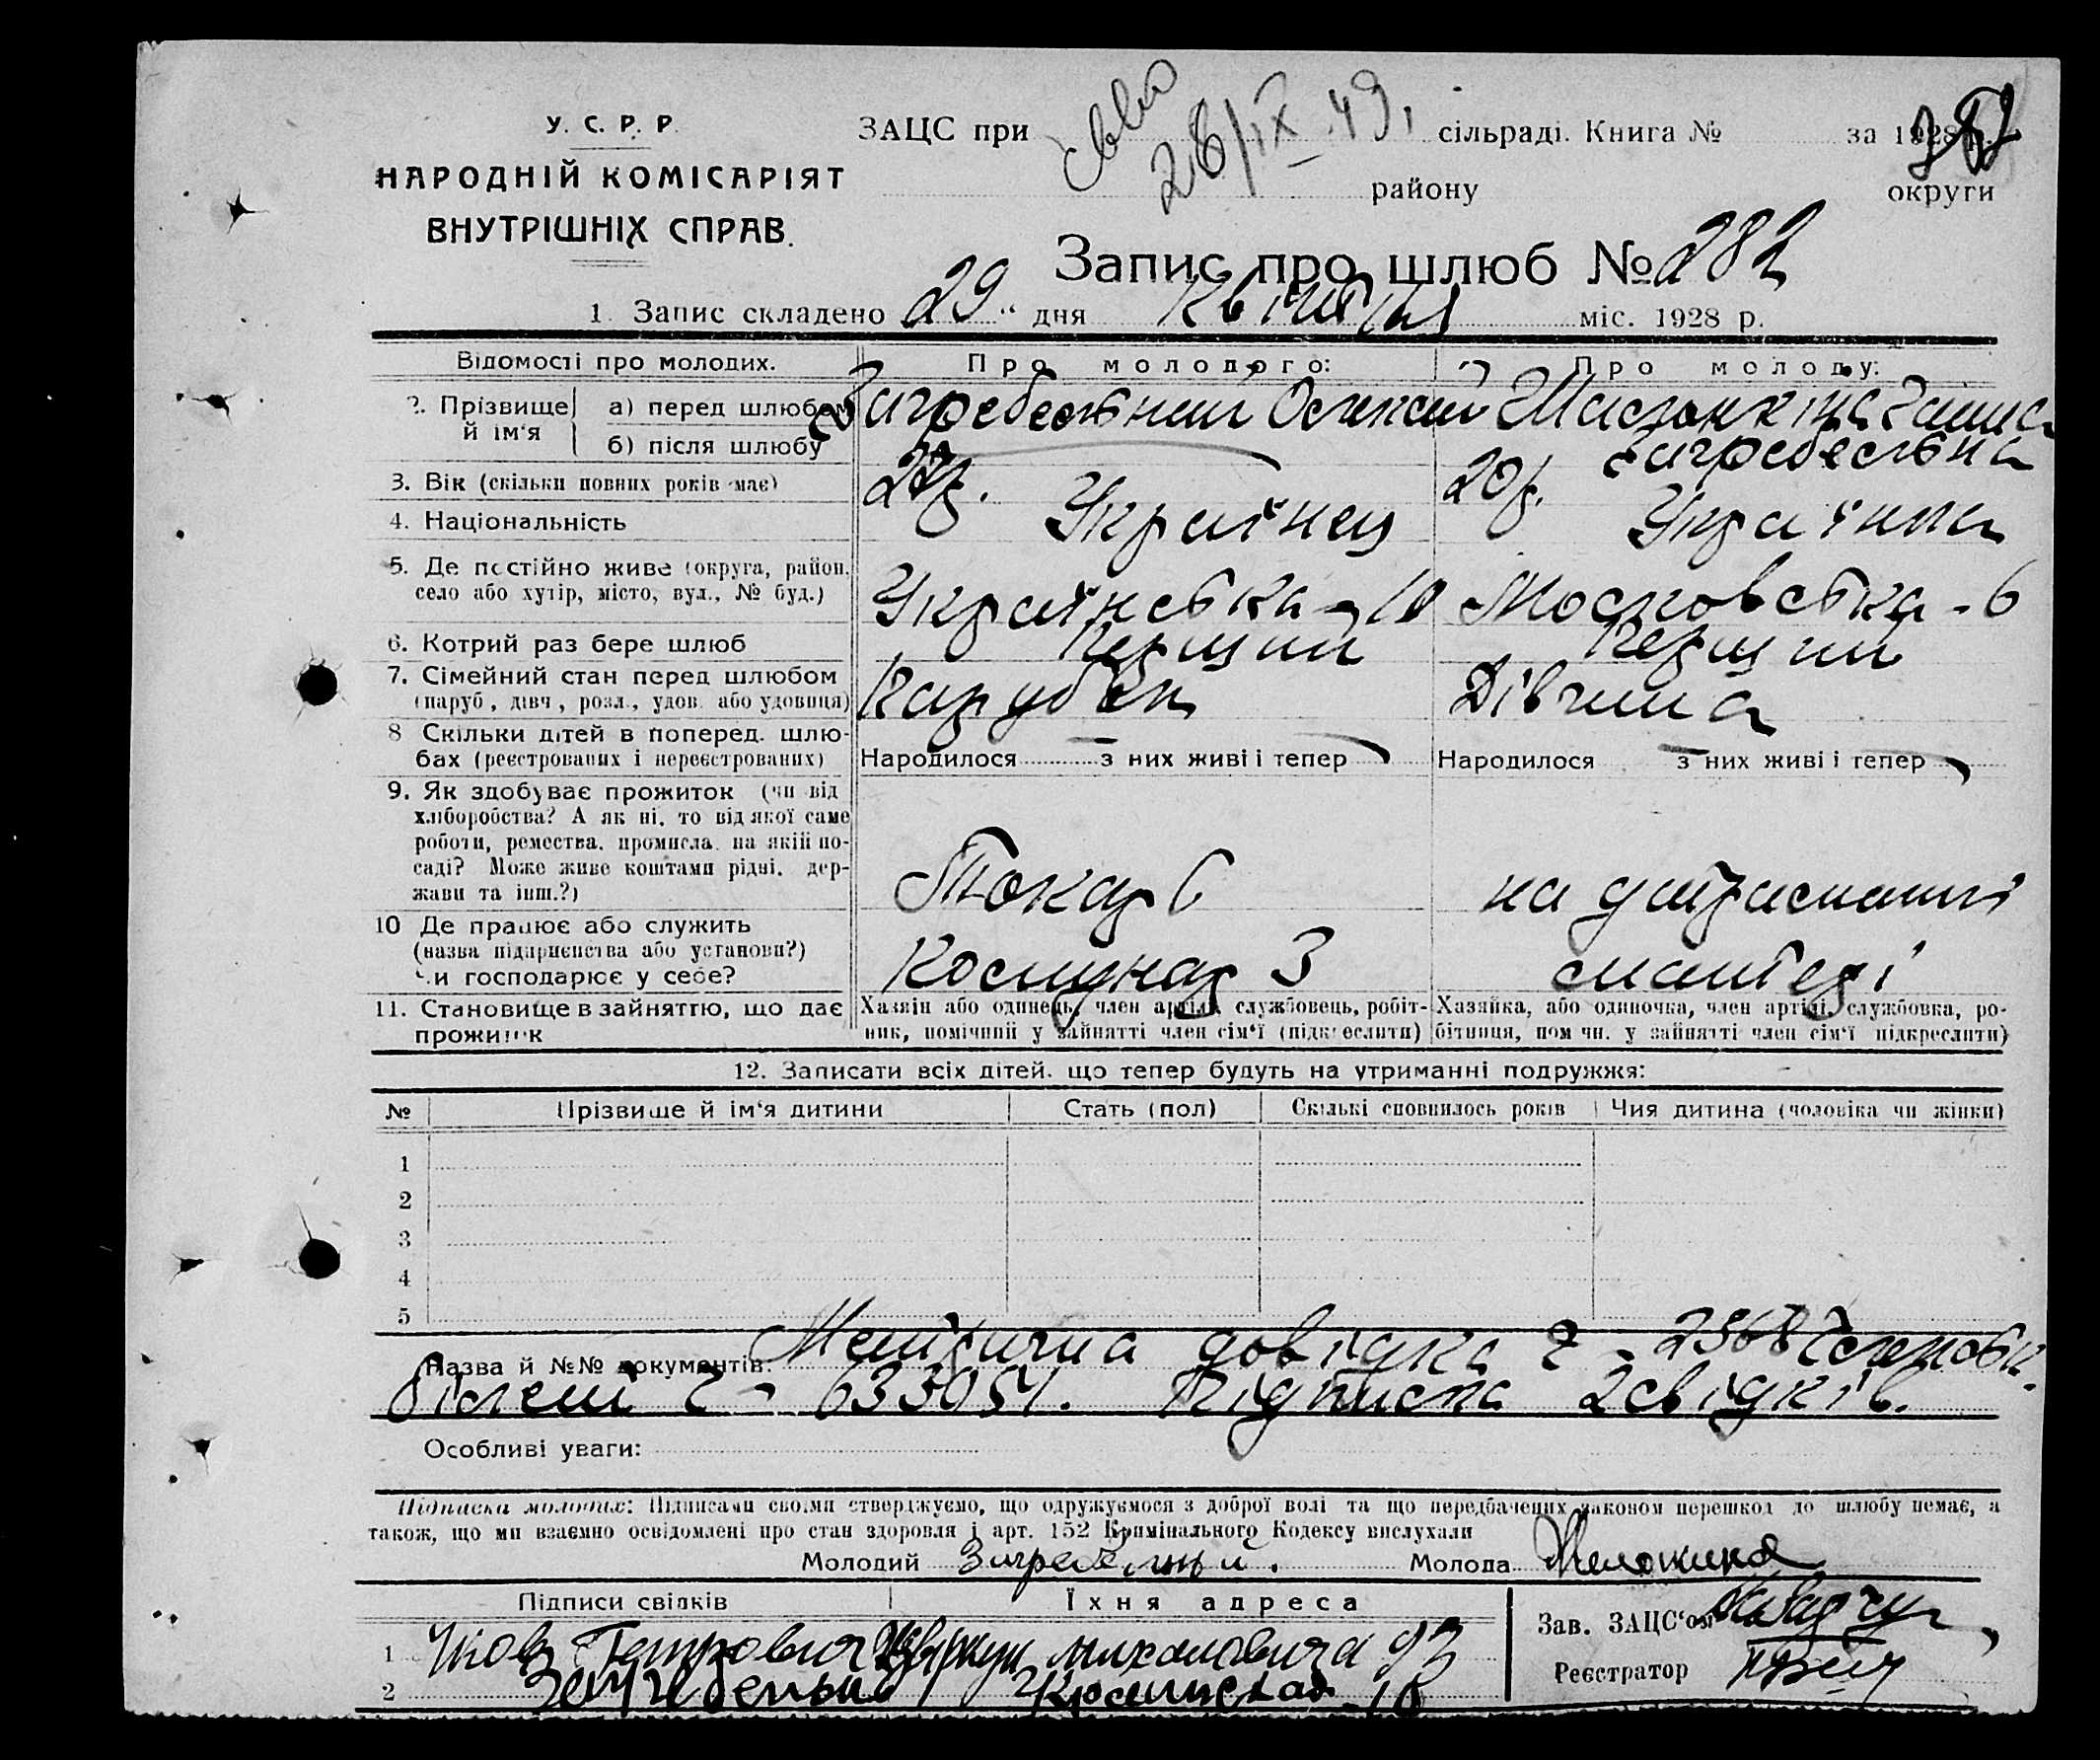 У. С. Р. Р.
НАРОДНІЙ КОМІСАРІЯТ
ВНУТРІШНІХ СПРАВ.
ЗАЦС при сільраді. Книга № за 1928
28/IX-49.
району округи
Запис про шлюб № 282
1. Запис складено 29 " дня Квітня міс. 1928 р.
Відомості про молодих. Про молодого: Про молоду:
2. Прізвище й ім'я
а) перед шлюбом Загребельний Олексій
б) після шлюбу Загребельна
3. Вік (скільки повних років має) 20р.
4. Національність Українец Українка
5. Де постійно живе (округа, район, село або хутір, місто, вул., № буд.) Українська - 10 Московська - 6
6. Котрий раз бере шлюб Перший Перший
7. Сімейний стан перед шлюбом (паруб., дівч., розл., удов. або удовиця) Парубок Дівчина
8. Скільки дітей в поперед. шлюбах (реєстрованих і нереєстрованих) Народилося з них живі і тепер Народилося з них живі і тепер
9. Як здобуває прожиток (чи від хліборобства? А як ні, то від якої саме роботи, ремества, промисла, на якій посаді? Може живе коштами рідні, держави та інш.?) Токарь на утриманні
10. Де працює або служить (назва підприємства або установи?) Чи господарює у себе? Комунар З матері
11. Становище в зайняттю, що дає прожиток Хазяїн або одинець, член артілі, службовець, робітник, помічний у зайнятті член сім'ї (підкреслити) Хазяйка, або одиночка, член артілі, службовка, робітниця, помічн. у зайнятті член сім'ї підкреслити)
12. Записати всіх дітей, що тепер будуть на утриманні подружжя:
№ Прізвище й ім'я дитини Стать (пол) Скількі сповнилось років Чия дитина (чоловіка чи жінки)
1
2
3
4
5
Назва й №№ документів: Метрична довідка 2368
білет 633051. Підписка 2 свідків.
Особливі уваги:
Підписка молодих: Підписами своїми стверджуємо, що одружуємося з доброї волі та що передбачених законом перешкод до шлюбу немає, а
також, що ми взаємно освідомлені про стан здоровля і арт. 152 Кримінального Кодексу вислухали
Молодий Загребельний. Молода
Підписи свідків Їхня адреса
Зав. ЗАЦС'ом
1 Петрович 93
Реєстратор
2 Загребельний Украинская - 10